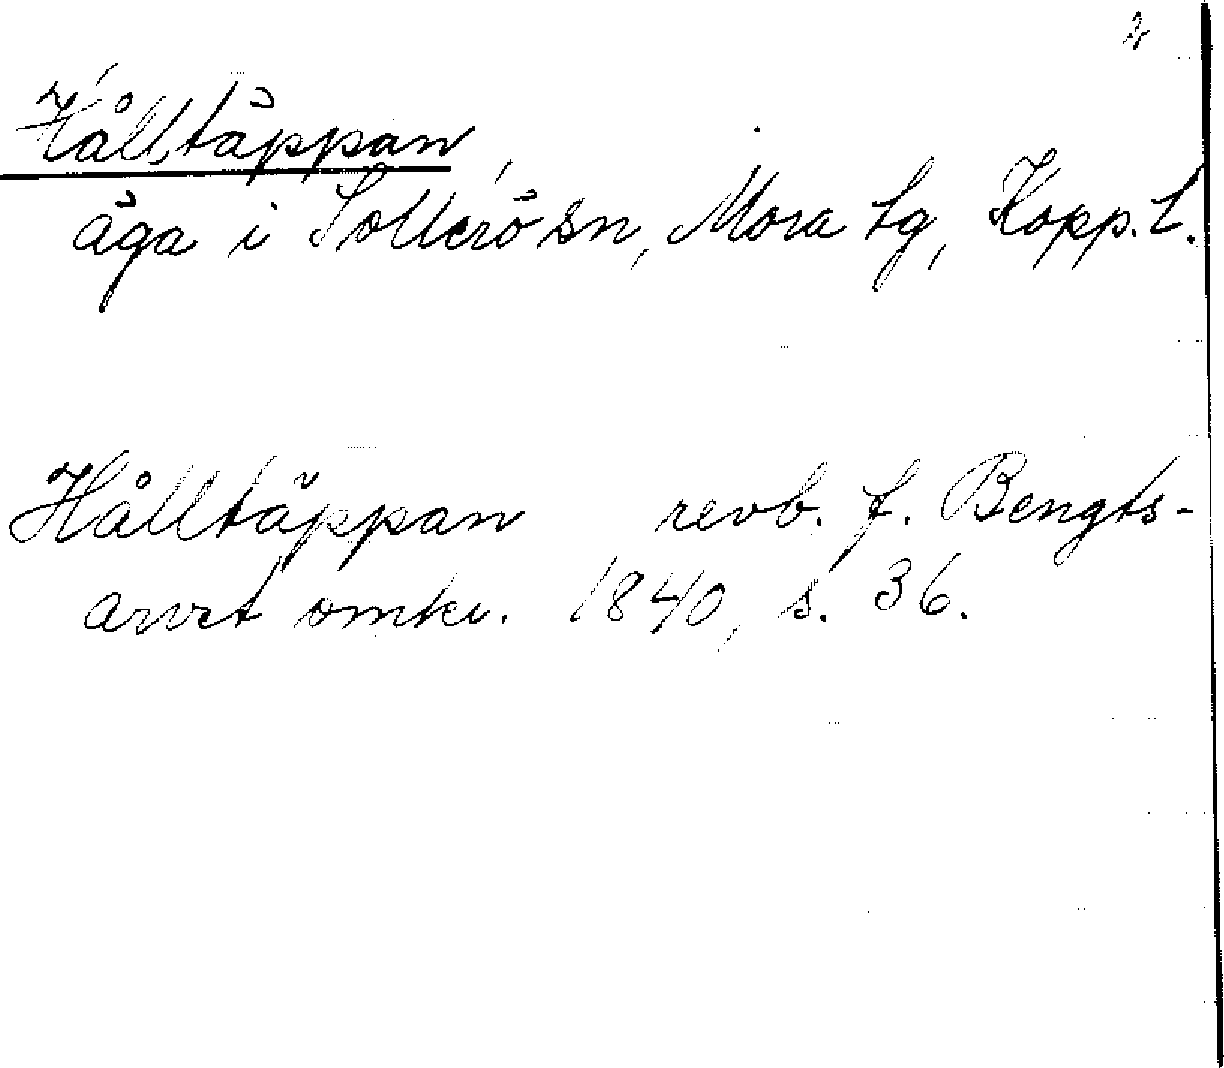 2
Hålltäppan
äga i Sollerö sn, Mora tg, Kopp. l.
Hålltäppan revb. f. Bengts-
arvet omkr. 1840, s. 36.